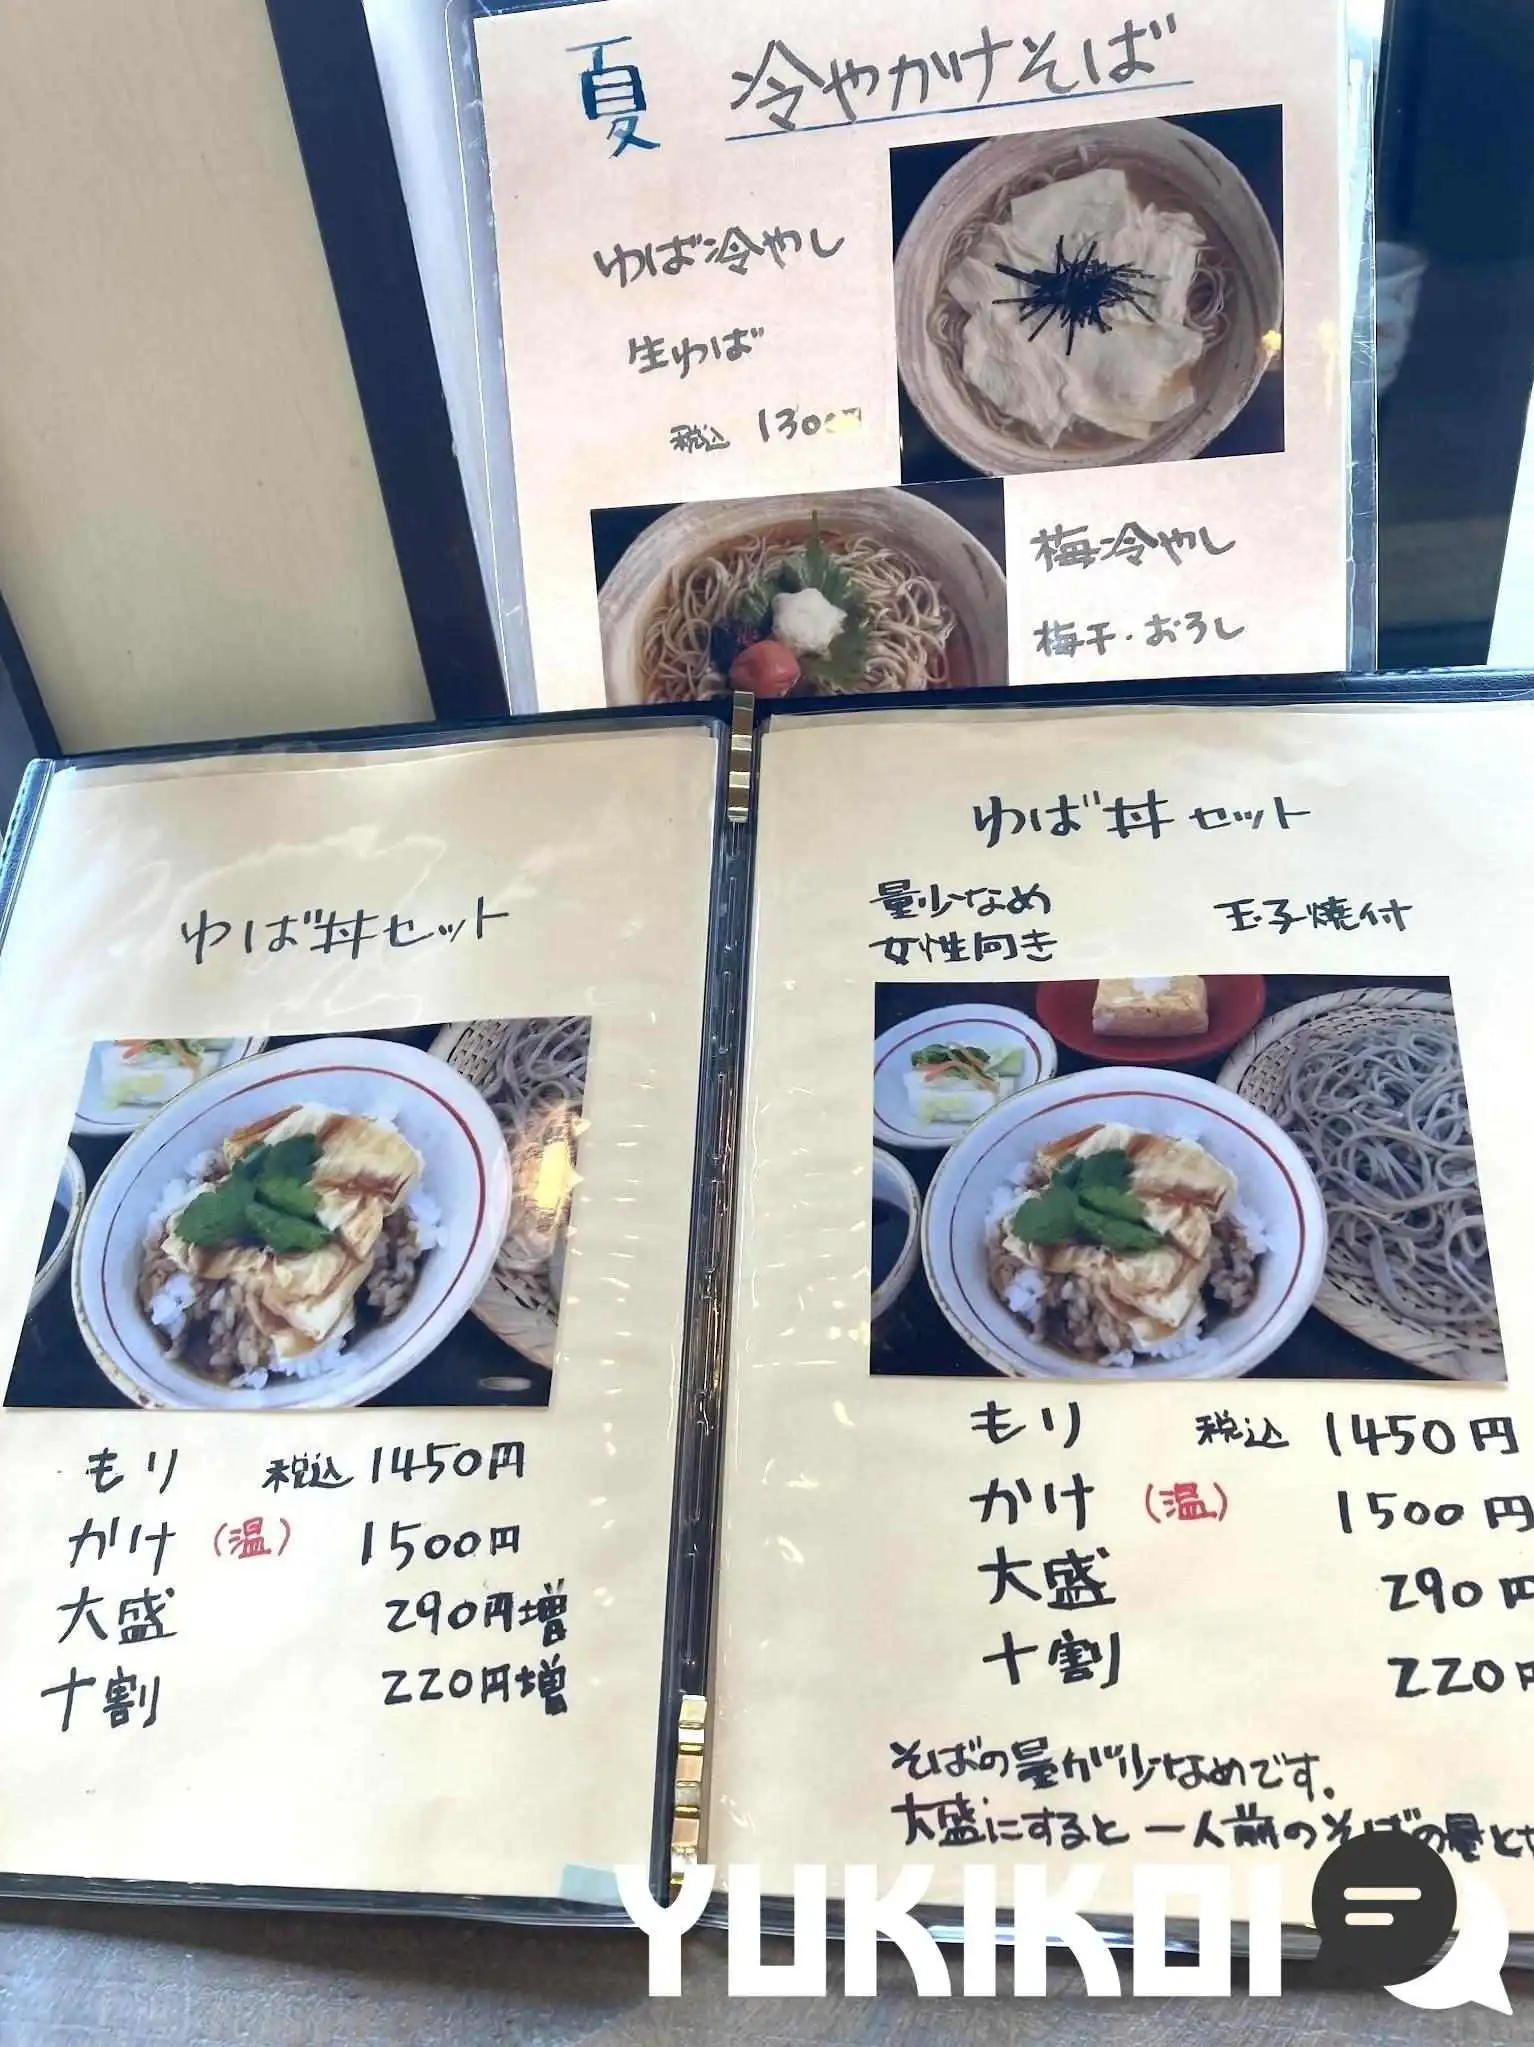 夏 冷やかけそば
ゆば冷やし
生ゆば
税込 1300円
梅冷やし
梅干・おろし
ゆば丼セット
もり 税込 1450円
かけ (温) 1500円
大盛 290円増
十割 220円増
ゆば丼セット
量少なめ
女性向き
玉子焼付
もり 税込 1450円
かけ (温) 1500円
大盛 290円
十割 220円
そばの量が少なめです。
大盛にすると一人前のそばの量と
YUKIKOI